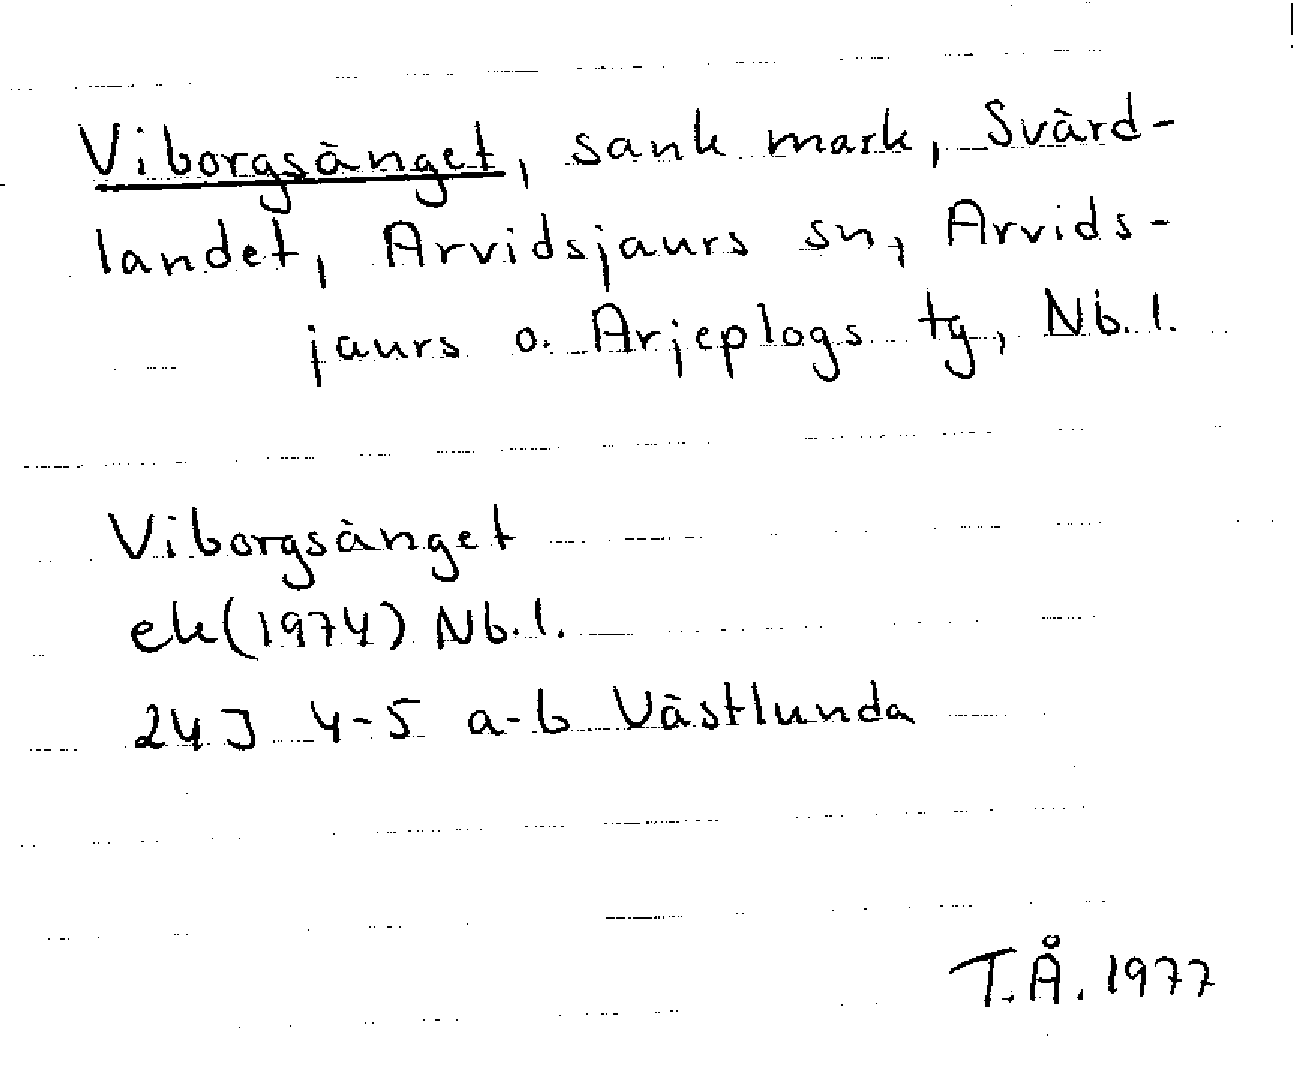 Viborgsänget, sank mark, Svärd-
landet, Arvidsjaurs sn, Arvids-
jaurs o. Arjeplogs tg, Nb. l.
Viborgsänget
ek (1974) Nb. l.
24 J 4-5 a-b Västlunda
T.Å. 1977